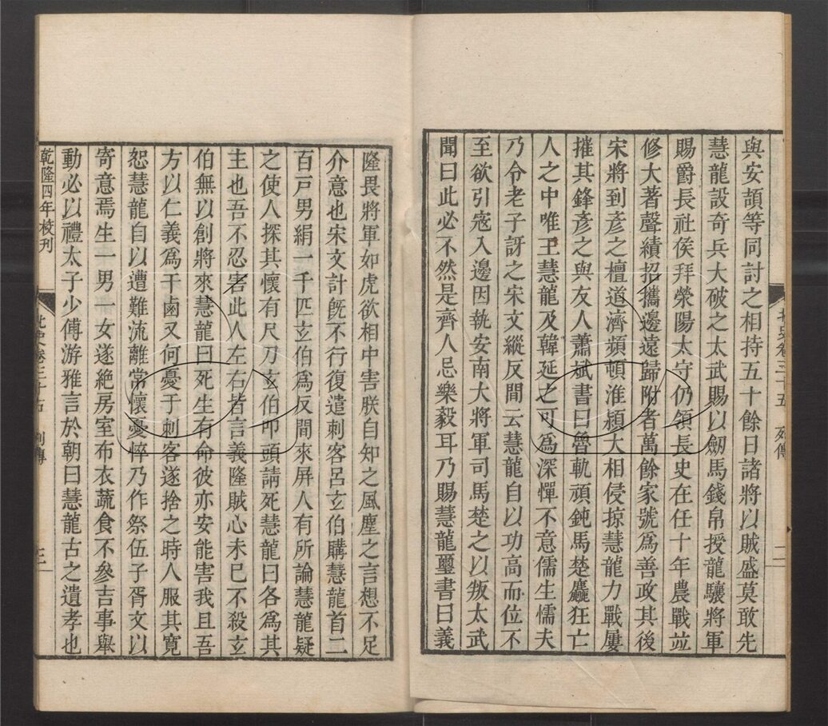 與安頡等同討之相持五十餘日諸將以賊盛莫敢先
慧龍設奇兵大破之太武賜以劒馬錢帛授龍驤將軍
賜爵長社侯拜滎陽太守仍領長史在任十年農戰竝
修大著聲績招攜邊遠歸附者萬餘家號爲善政其後
宋將到彥之檀道濟頻頓淮潁大相侵掠慧龍力戰屢
摧其鋒彥之與友人蕭斌書曰魯軌頑鈍馬楚麤狂亡
人之中唯王慧龍及韓延之可爲深憚不意儒生懦夫
乃令老子訝之宋文縱反間云慧龍自以功高而位不
至欲引寇入邊因執安南大將軍司馬楚之以叛太武
聞曰此必不然是齊人忌樂毅耳乃賜慧龍璽書曰義
北史卷三十五 列傳 二
隆畏將軍如虎欲相中害朕自知之風塵之言想不足
介意也宋文計旣不行復遣刺客呂玄伯購慧龍首二
百戸男絹一千匹玄伯爲反間來屏人有所論慧龍疑
之使人探其懷有尺刀玄伯叩頭請死慧龍曰各爲其
主也吾不忍害此人左右皆言義隆賊心未已不殺玄
伯無以創將來慧龍曰死生有命彼亦安能害我且吾
方以仁義爲干鹵又何憂于刺客遂捨之時人服其寬
恕慧龍自以遭難流離常懷憂悴乃作祭伍子胥文以
寄意焉生一男一女遂絶房室布衣蔬食不參吉事舉
動必以禮太子少傅游雅言於朝曰慧龍古之遺孝也
乾隆四年校刊
北史卷三十五 列傳 三